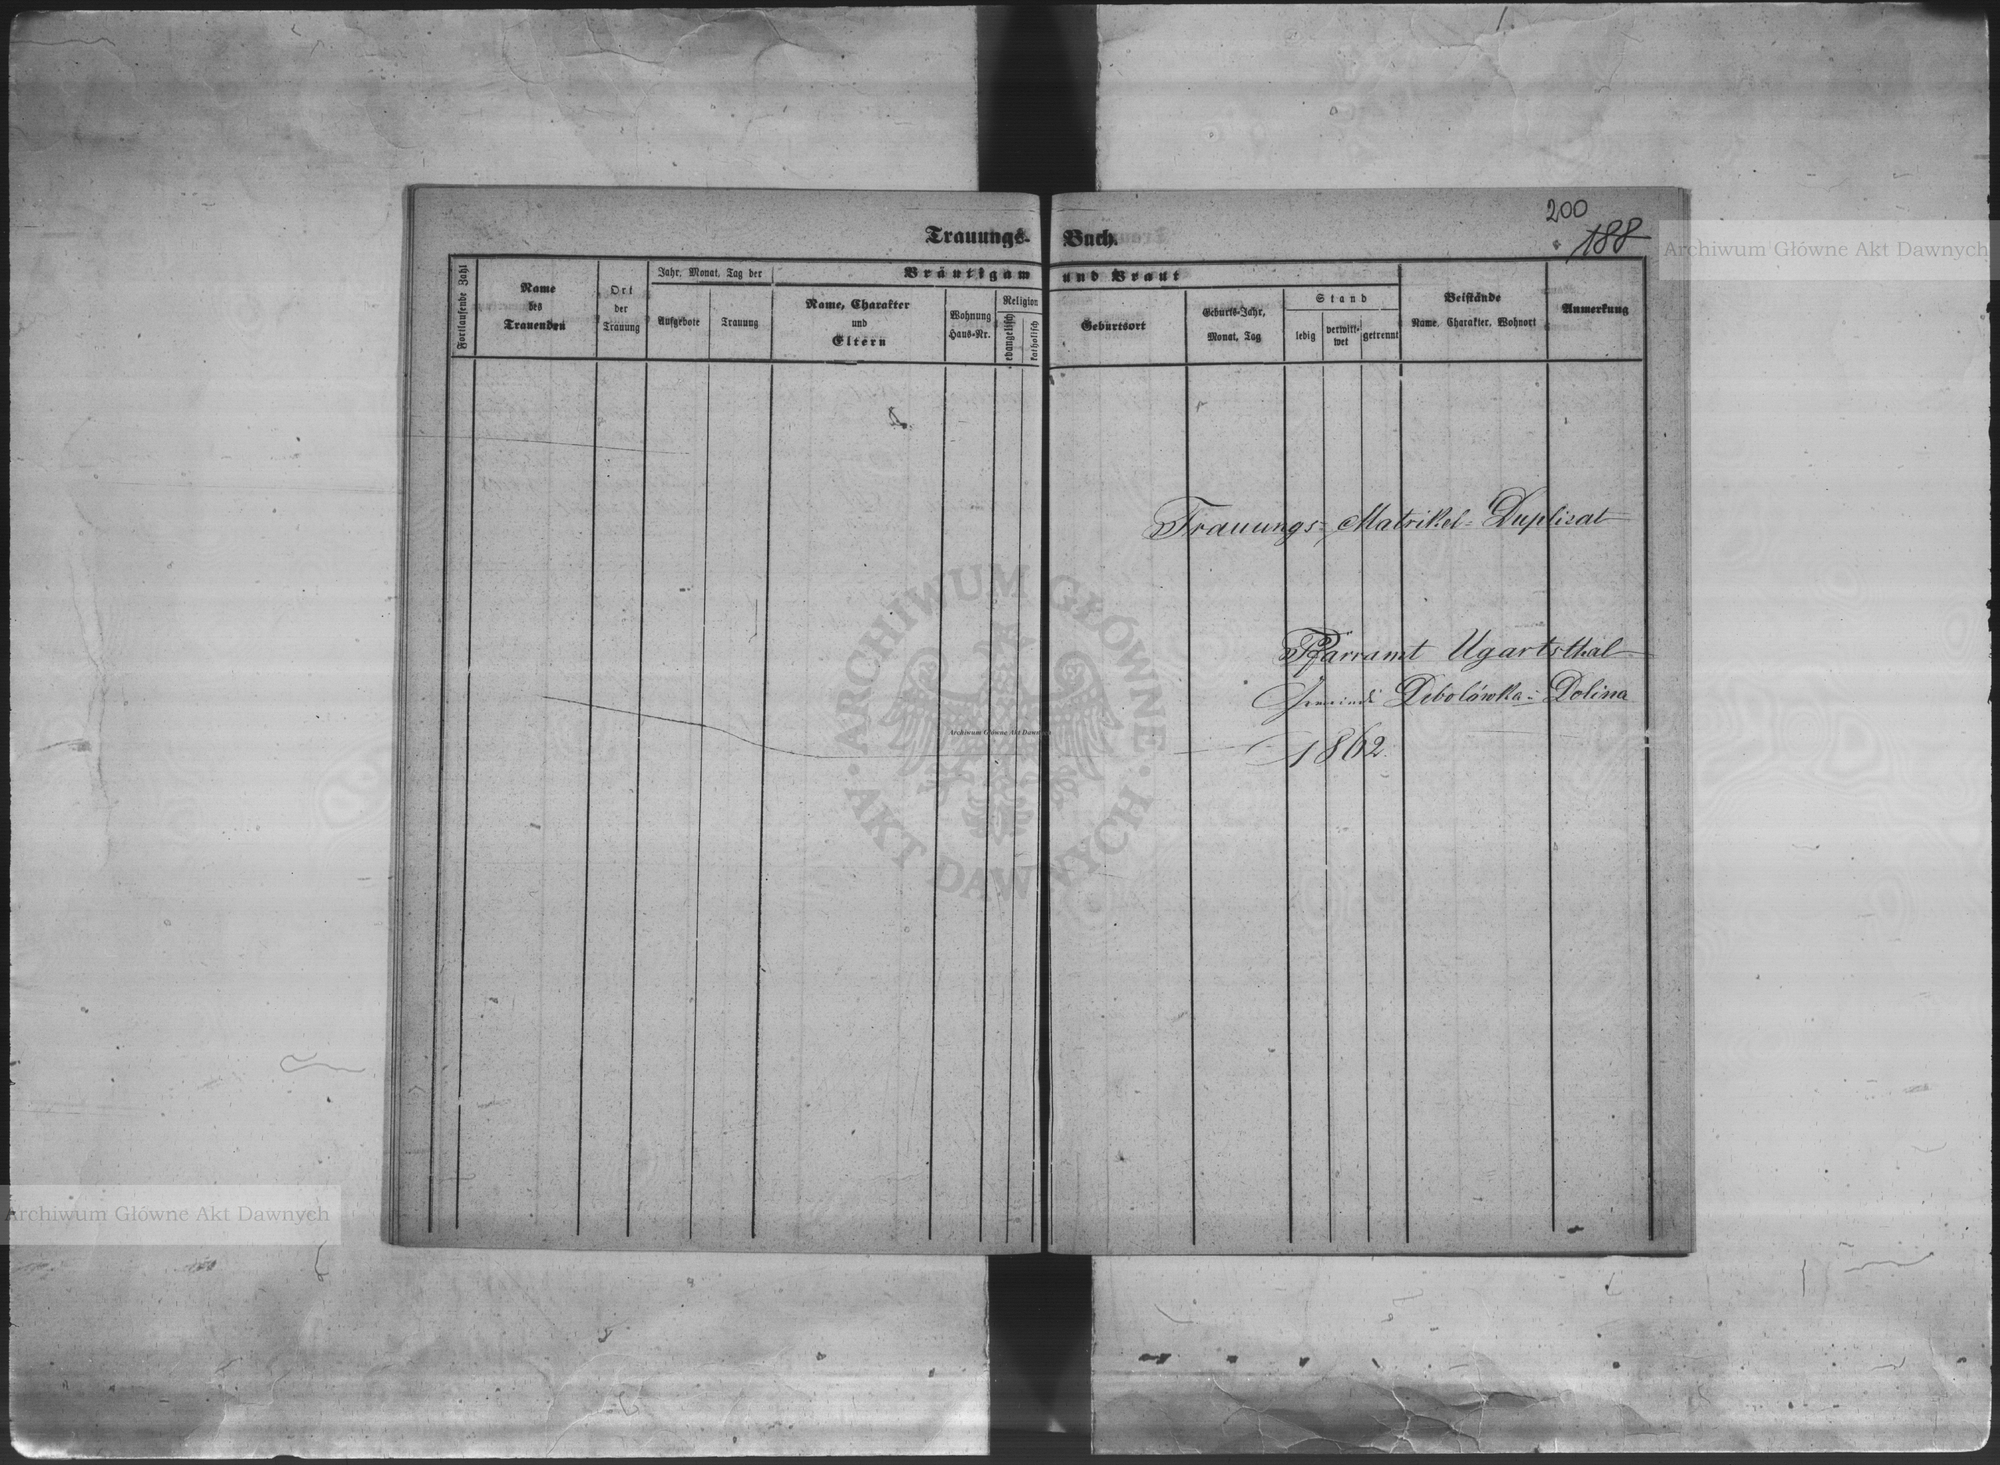 200
188
Trauungs- Buch.
Fortlaufende Zahl
Name des Trauenden
Ort der Trauung
Jahr, Monat, Tag der
Aufgebote
Trauung
Bräutigam und Braut
Name, Charakter und Eltern
Wohnung Haus-Nr.
Religion
evangelisch
katholisch
Geburtsort
Geburts-Jahr, Monat, Tag
Stand
ledig
verwittwet
getrennt
Beistände
Name, Charakter, Wohnort
Anmerkung
Trauungs- Matrikel- Duplicat
Pfarramt Ugartsthal
Gemeinde Debolówka- Dolina
1862.
Archiwum Główne Akt Dawnych
ARCHIWUM GŁÓWNE
· AKT DAWNYCH ·
Archiwum Główne Akt Dawnych
Archiwum Główne Akt Dawnych